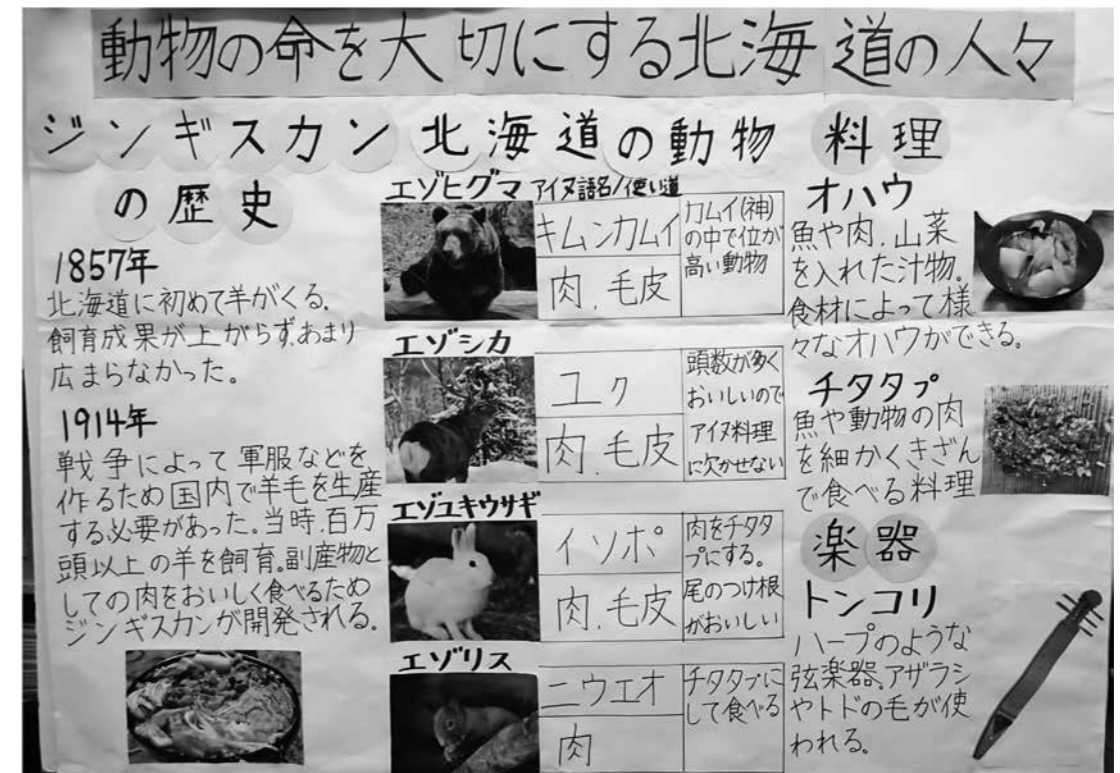 動物の命を大切にする北海道の人々
ジンギスカン
の歴史
1857年
北海道に初めて羊がくる。
飼育成果が上がらず、あまり
広まらなかった。
1914年
戦争によって軍服などを
作るため国内で羊毛を生産
する必要があった。当時、百万
頭以上の羊を飼育。副産物と
しての肉をおいしく食べるため
ジンギスカンが開発される。
北海道の動物
エゾヒグマ アイヌ語名/使い道
キムンカムイ
肉、毛皮
カムイ(神)
の中で位が
高い動物
エゾシカ
ユク
肉、毛皮
頭数が多く
おいしいので
アイヌ料理
に欠かせない
エゾユキウサギ
イソポ
肉、毛皮
肉をチタタ
プにする。
尾のつけ根
がおいしい
エゾリス
ニウエオ
肉
チタタプに
して食べる
料理
オハウ
魚や肉、山菜
を入れた汁物。
食材によって様
々なオハウができる。
チタタプ
魚や動物の肉
を細かくきざん
で食べる料理
楽器
トンコリ
ハープのような
弦楽器。アザラシ
やトドの毛が使
われる。